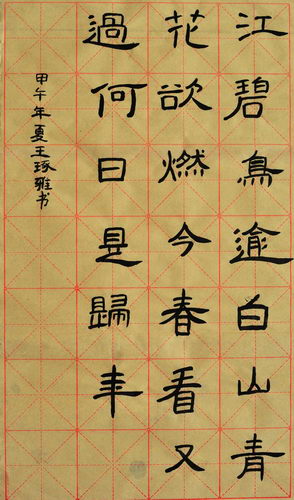 江碧鳥逾白山青
花欲燃今春看又
過何日是歸年
甲午年夏王琢雅书